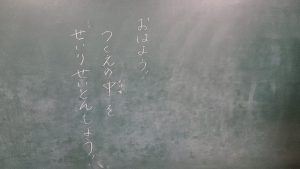 おはよう！
つくえの中を
せいりせいとんしよう！